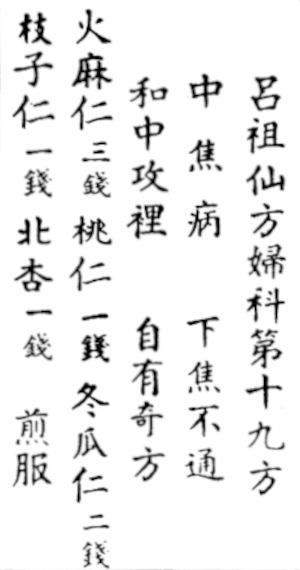 呂祖仙方婦科第十九方
中焦病 下焦不通
和中攻裡 自有奇方
火麻仁三錢 桃仁一錢 冬瓜仁二錢
枝子仁一錢 北杏一錢 煎服